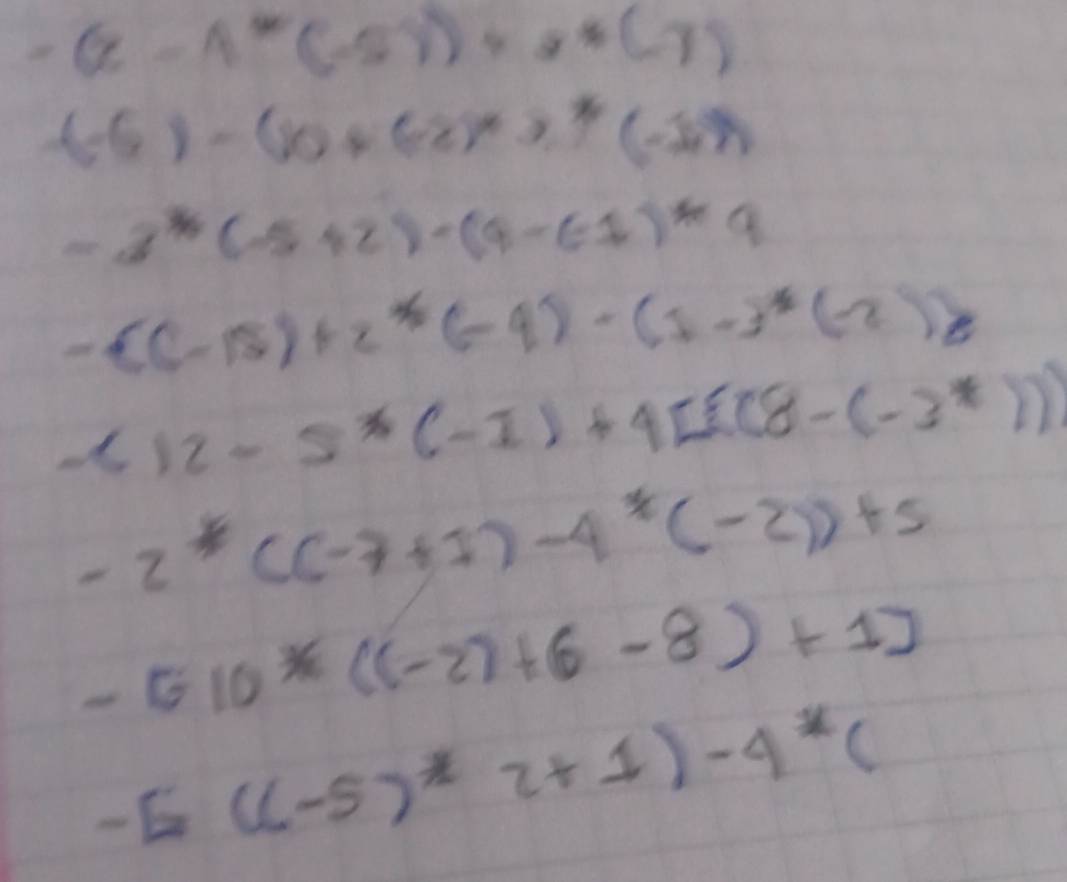 -(2 - 1*(-5)) + *(-7)
(-6) - (10 + (-2)* 3 *(-1))
- 3*(-5+2)-(4-(-1)* 9
-((-15)+2*(-4) - (1-3*(-2))
-(12 - 5*(-1) + 4[[(8-(-3*)))
- 2*((-7+1)-4*(-2))+5
-[10*((-2)+6 -8) + 1]
-[((-5)* 2+1)-4*(